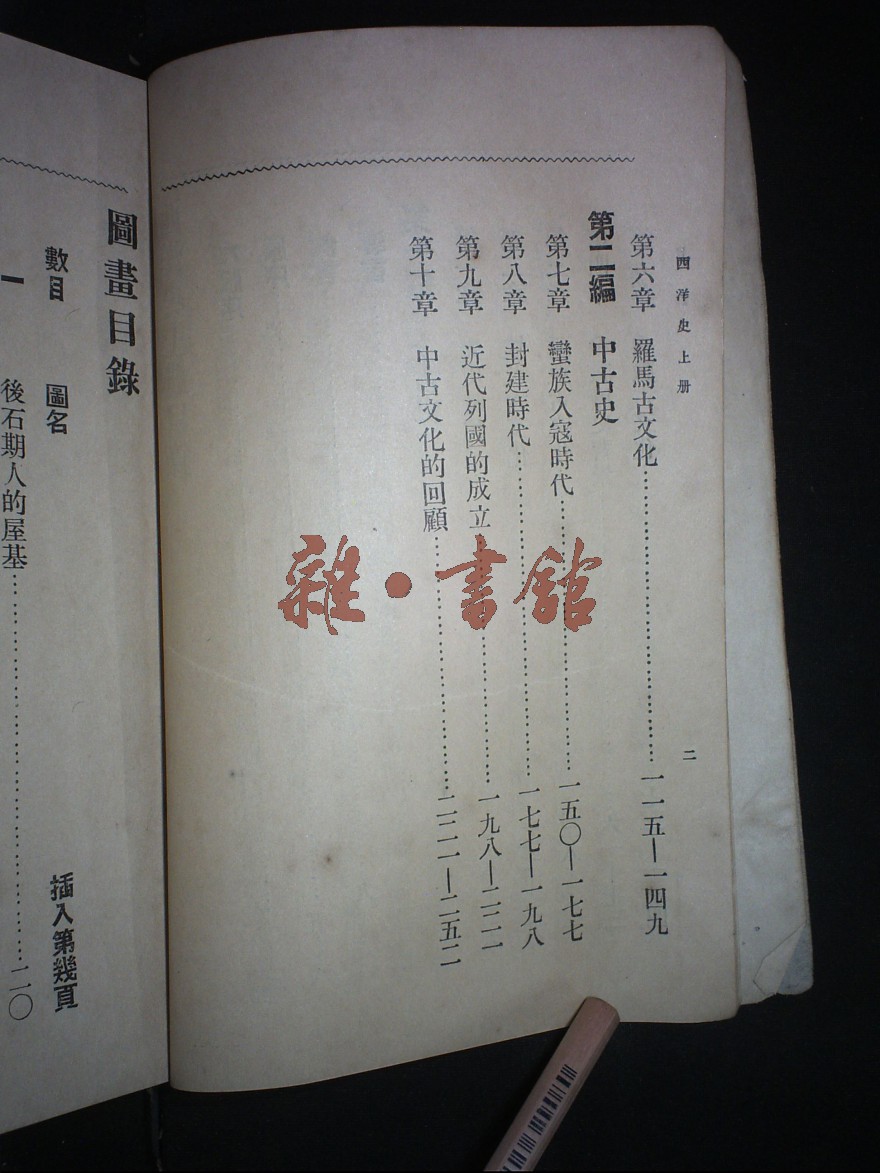 西洋史上册 二
第六章 羅馬古文化……一一五—一四九
第二編 中古史
第七章 蠻族入寇時代……一五〇—一七七
第八章 封建時代……一七七—一九八
第九章 近代列國的成立……一九八—二二一
第十章 中古文化的回顧……二二一—二五二
圖畫目錄
數目 圖名 插入第幾頁
一 後石期人的屋基……二〇
雜·書館